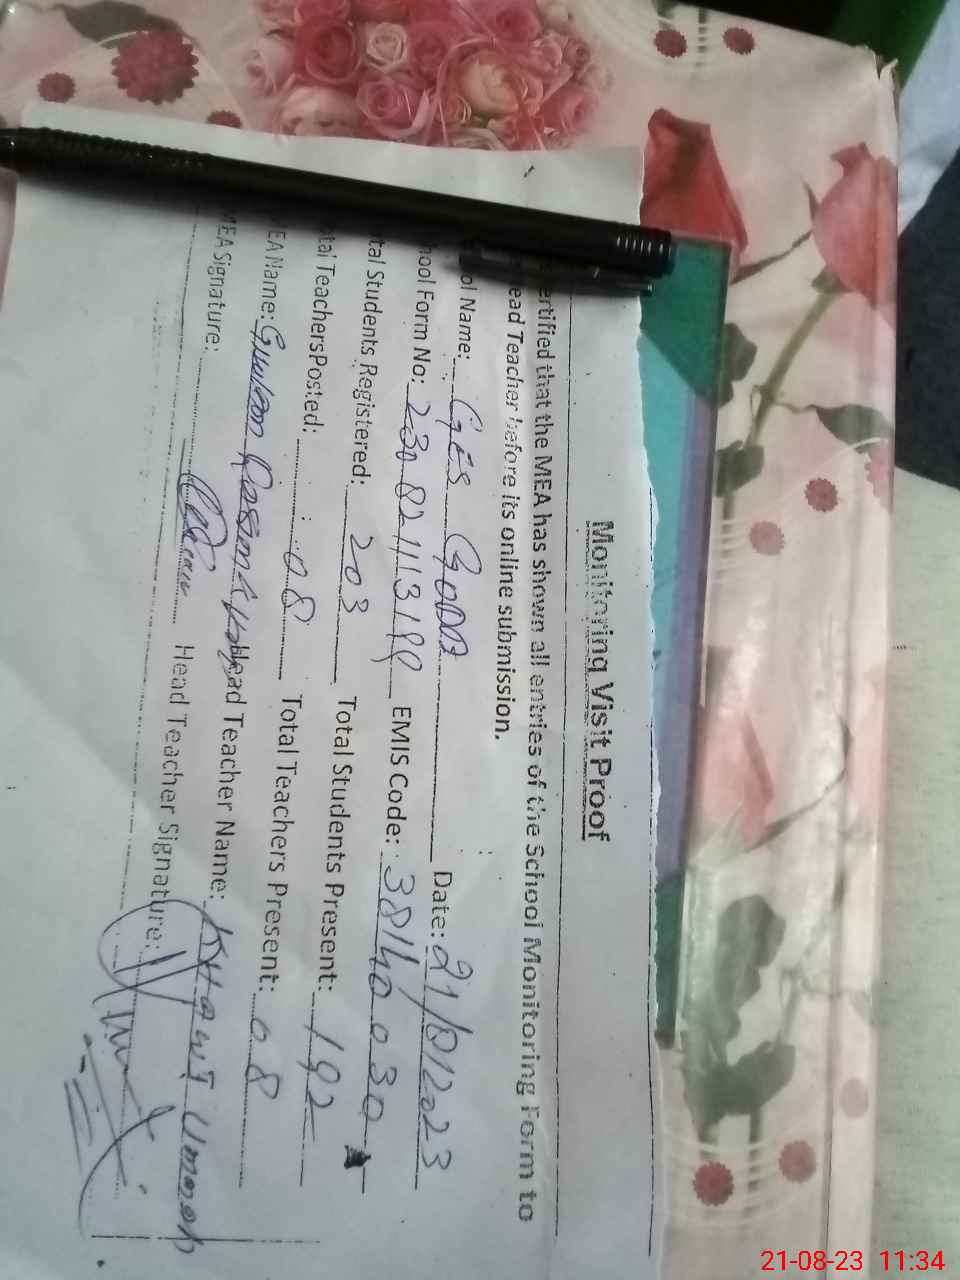 Monitoring Visit Proof
ertified that the MEA has shown all entries of the School Monitoring Form to
ead Teacher before its online submission.
ol Name: GES Date: 21/8/2023
hool Form No: EMIS Code: 38140030
tal Students Registered: 203 Total Students Present: 192
otal TeachersPosted: 08 Total Teachers Present: 08
EA Name: ad Teacher Name:
MEA Signature: Head Teacher Signature:
21-08-23 11:34